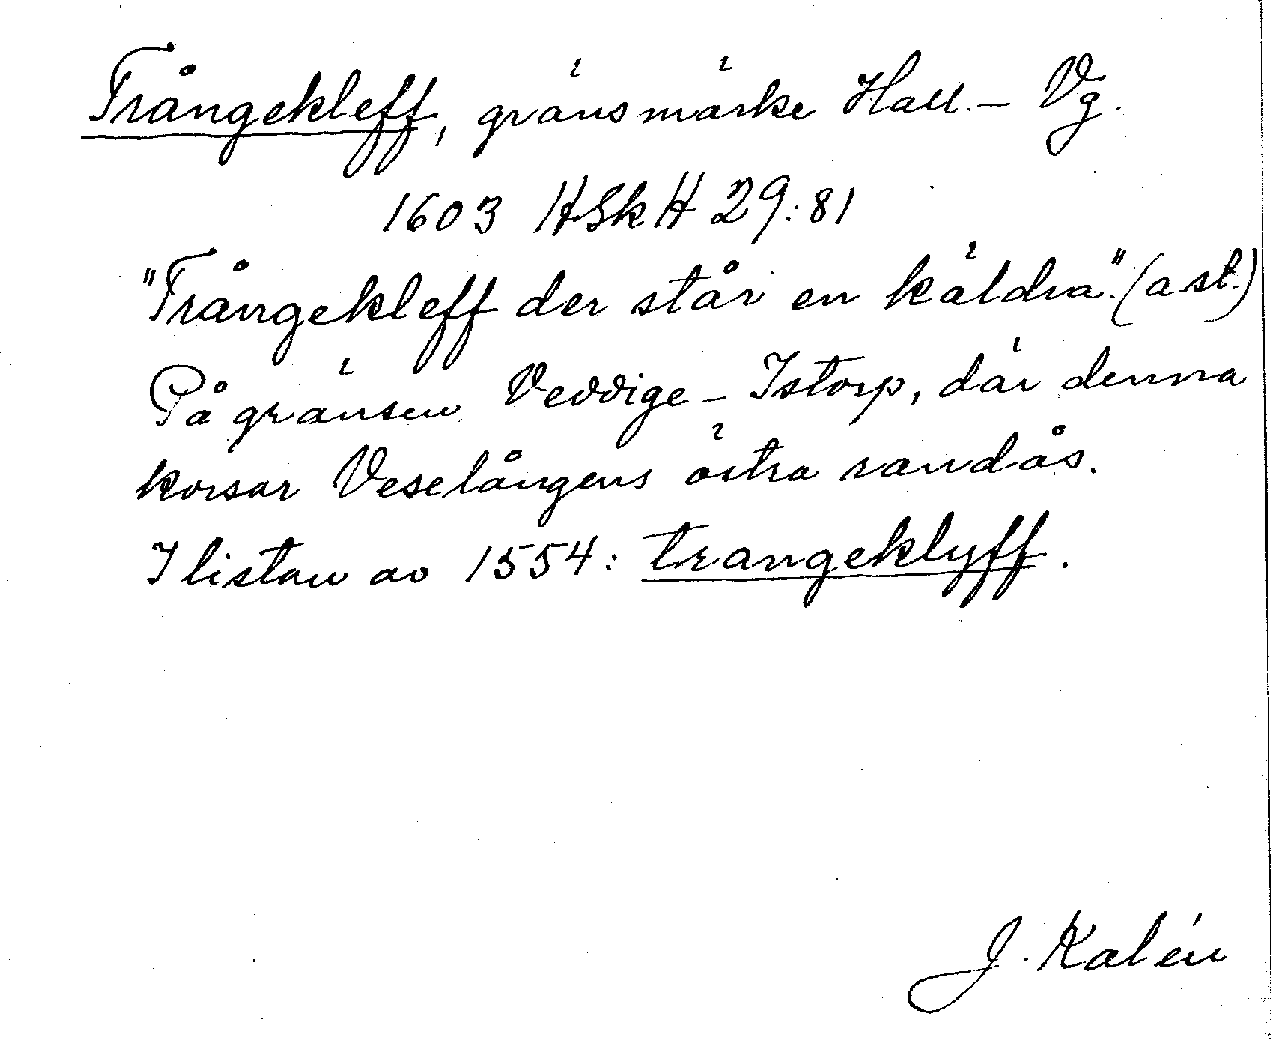 Trångekleff, gränsmärke Hall. – Vg.
1603 HSkH 29:81
"Trångekleff der står en käldra". (a.st.)
På gränsen Veddige – Istorp, där denna
korsar Veselångens östra randås.
I listan av 1554: trangeklyff.
J. Kalén